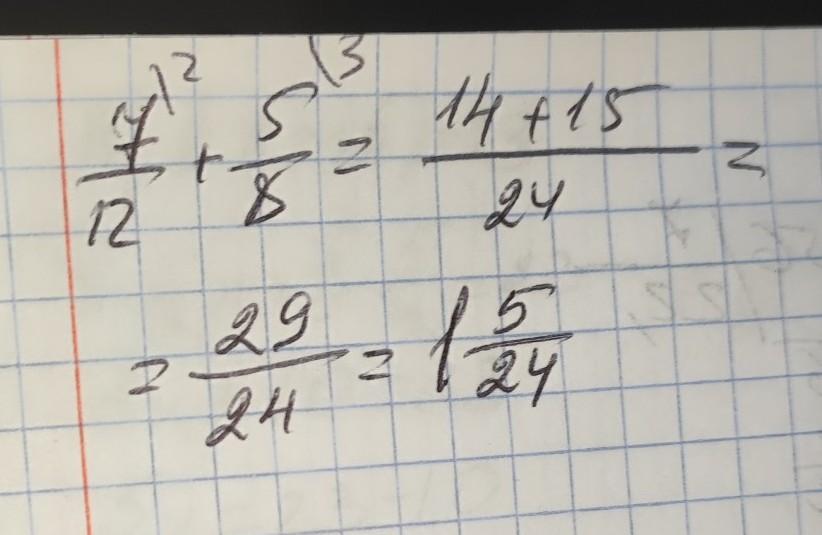 7\2/12 + 5\3/8 = 14+15/24 =
= 29/24 = 1 5/24